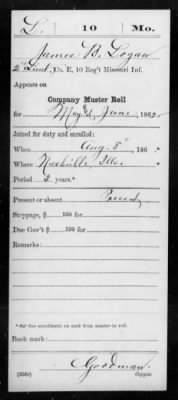 L. 10 Mo.
James B. Logan
2" Lieut., Co. E, 10 Reg't Missouri Inf.
Appears on
Company Muster Roll
for May & June, 1862.
Joined for duty and enrolled:
When Aug. 8", 186
Where Nashville, Ills.
Period 3 years.*
Present or absent Present
Stoppage, $ 100 for
Due Gov't $ 100 for
Remarks:
* See enrollment on card from muster-in roll.
Book mark:
Goodman
(358c) Copyist.